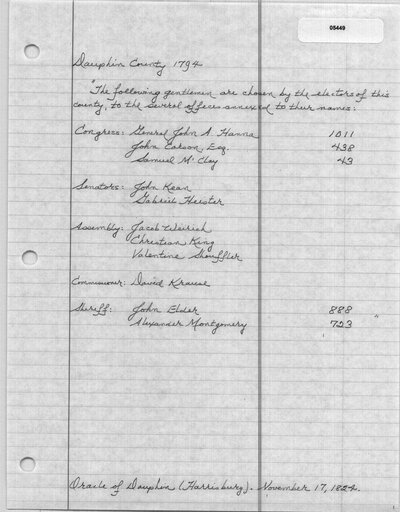 05449
Dauphin County 1794
"The following gentlemen are chosen by the electors of this
county, to the several offices annexed to their names:
Congress: General John A. Hanna 1011
John Carson Esq. 438
Samuel McClay 43
Senators: John Kean
Gabriel Heister
Assembly: Jacob Weirich
Christian King
Valentine Shouffler
Commissioner: David Krause
Sheriff: John Elder 888
Alexander Montgomery 723 "
Oracle of Dauphin (Harrisburg). November 17, 1824.